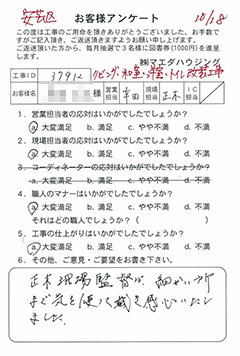 安芸区
お客様アンケート
10/18
この度は工事のご用命を頂きありがとうございました。お手数で
すがご記入頂き、ご返送頂きますようお願い申し上げます。
ご返送頂いた方から、毎月抽選で3名様に図書券(1000円)を進呈
します。
㈱マエダハウジング
工事ID 37912 リビング・和室・洋室・トイレ改装工事
お客様名 様 営業担当 現場担当 正木 IC担当
1. 営業担当者の応対はいかがでしたでしょうか?
a. 大変満足 b. 満足 c. やや不満 d. 不満
2. 現場担当者の応対はいかがでしたでしょうか?
a. 大変満足 b. 満足 c. やや不満 d. 不満
3. コーディネーターの応対はいかがでしたでしょうか?
a. 大変満足 b. 満足 c. やや不満 d. 不満
4. 職人のマナーはいかがでしたでしょうか?
a. 大変満足 b. 満足 c. やや不満 d. 不満
それはどの職人でしょうか?( )
5. 工事の仕上がりはいかがでしたでしょうか?
a. 大変満足 b. 満足 c. やや不満 d. 不満
6. その他、ご意見・ご要望をお書き下さい。
正木現場監督が、細かい所
まで気を使って 感心いたし
ました。